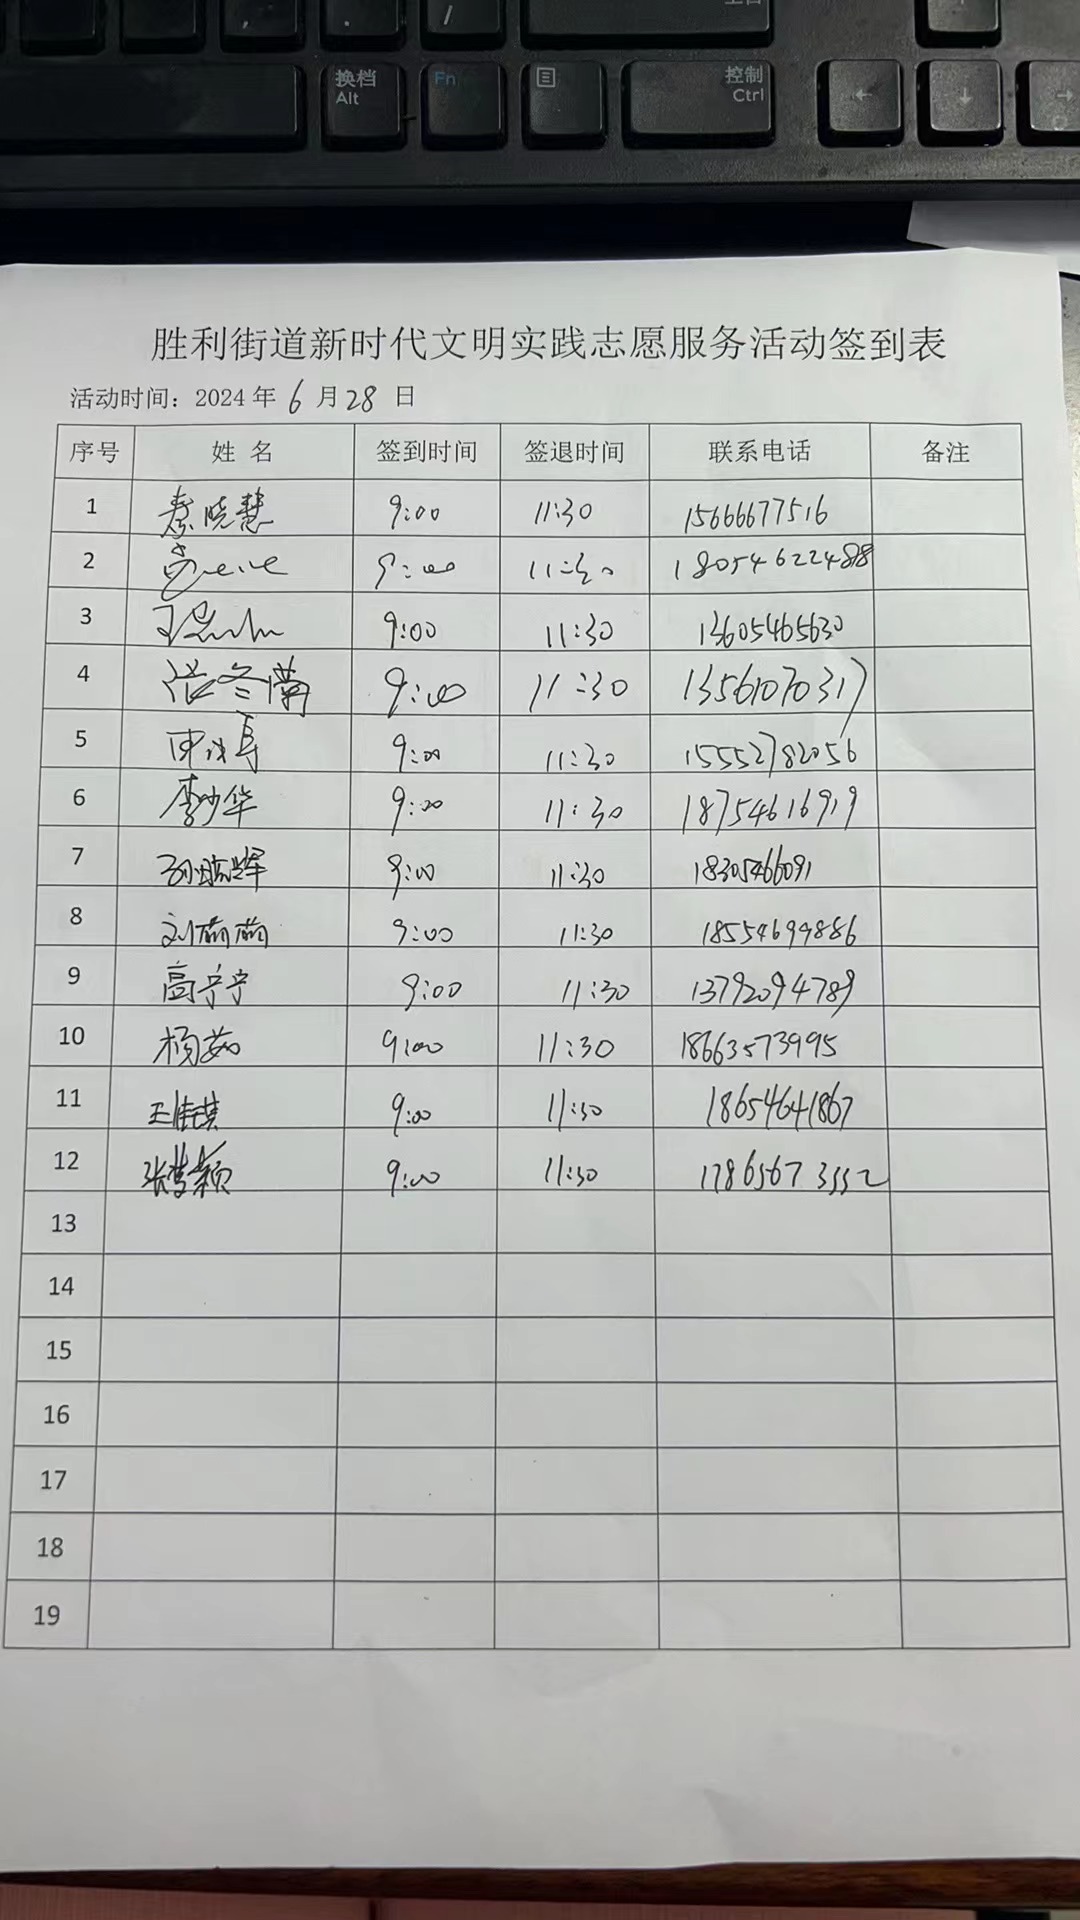 换档 Alt Fn 控制 Ctrl
胜利街道新时代文明实践志愿服务活动签到表
活动时间：2024 年 6 月 28 日
序号 姓 名 签到时间 签退时间 联系电话 备注
1 秦晓慧 9:00 11:30 15666677516
2 9:00 11:30 18054622488
3 9:00 11:30 13605465630
4 张冬 9:00 11:30 13561070317
5 9:00 11:30 15552782056
6 李少华 9:00 11:30 18754616919
7 9:00 11:30 18305466091
8 刘萌萌 9:00 11:30 18554699886
9 高宁宁 9:00 11:30 13792094789
10 杨茹 9:00 11:30 18663573995
11 王佳琪 9:00 11:30 18654641867
12 张梦颖 9:00 11:30 17865673552
13
14
15
16
17
18
19